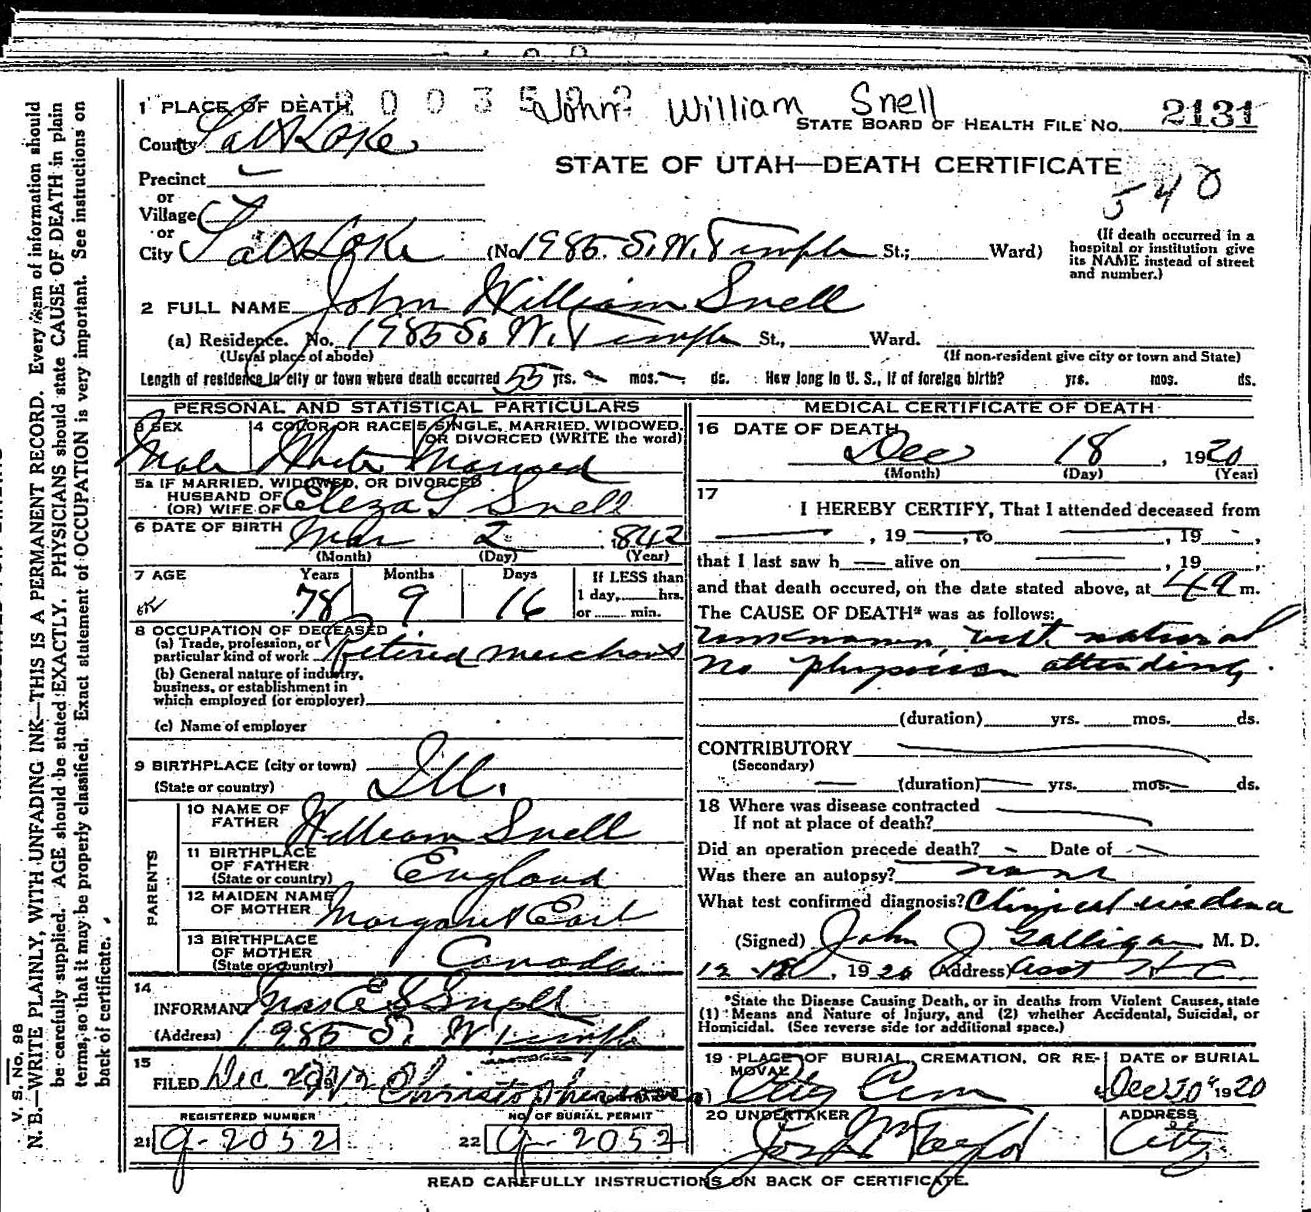 1 PLACE OF DEATH 20035 John William Snell
STATE BOARD OF HEALTH FILE NO. 2131
County Salt Lake
STATE OF UTAH—DEATH CERTIFICATE
540
Precinct
or
Village
or
City Salt Lake (No 1985. S. W. Temple St.; Ward)
(If death occurred in a hospital or institution give its NAME instead of street and number.)
2 FULL NAME John William Snell
(a) Residence. No. 1985 S. W. Temple St., Ward.
(Usual place of abode) (If non-resident give city or town and State)
Length of residence in city or town where death occurred 55 yrs. mos. ds. How long in U. S., if of foreign birth? yrs. mos. ds.
PERSONAL AND STATISTICAL PARTICULARS
3 SEX 4 COLOR OR RACE 5 SINGLE, MARRIED, WIDOWED, OR DIVORCED (WRITE the word)
Male White Married
5a IF MARRIED, WIDOWED, OR DIVORCED
HUSBAND OF
(OR) WIFE OF Eliza S Snell
6 DATE OF BIRTH Mar 2 842
(Month) (Day) (Year)
7 AGE Years Months Days If LESS than
1 day, hrs.
or min.
78 9 16
8 OCCUPATION OF DECEASED
(a) Trade, profession, or
particular kind of work Retired merchant
(b) General nature of industry,
business, or establishment in
which employed (or employer)
(c) Name of employer
9 BIRTHPLACE (city or town)
(State or country) Ill.
PARENTS
10 NAME OF
FATHER William Snell
11 BIRTHPLACE
OF FATHER
(State or country) England
12 MAIDEN NAME
OF MOTHER Margaret Earl
13 BIRTHPLACE
OF MOTHER
(State or country) Canada
14
INFORMANT Mrs E S Snell
(Address) 1985 S. W Temple
15
FILED Dec 20
REGISTERED NUMBER NO. OF BURIAL PERMIT
21 G-2052 22 G-2052
MEDICAL CERTIFICATE OF DEATH
16 DATE OF DEATH
Dec 18, 1920
(Month) (Day) (Year)
17
I HEREBY CERTIFY, That I attended deceased from
, 19 , to , 19 ,
that I last saw h alive on , 19 ,
and that death occured, on the date stated above, at m.
The CAUSE OF DEATH* was as follows:
unknown, but natural
No physician attending.
(duration) yrs. mos. ds.
CONTRIBUTORY
(Secondary)
(duration) yrs. mos. ds.
18 Where was disease contracted
If not at place of death?
Did an operation precede death? Date of
Was there an autopsy? none
What test confirmed diagnosis? Clinical evidence
(Signed) John J Galligan M. D.
12-18, 1920 (Address) Asst H C
*State the Disease Causing Death, or in deaths from Violent Causes, state
(1) Means and Nature of Injury, and (2) whether Accidental, Suicidal, or
Homicidal. (See reverse side for additional space.)
19 PLACE OF BURIAL, CREMATION, OR REMOVAL DATE OF BURIAL
City Cem Dec 20 1920
20 UNDERTAKER ADDRESS
Taylor City
READ CAREFULLY INSTRUCTIONS ON BACK OF CERTIFICATE.
V. S. No. 98
N. B.—WRITE PLAINLY, WITH UNFADING INK—THIS IS A PERMANENT RECORD. Every item of information should
be carefully supplied. AGE should be stated EXACTLY. PHYSICIANS should state CAUSE OF DEATH in plain
terms, so that it may be properly classified. Exact statement of OCCUPATION is very important. See instructions on
back of certificate.